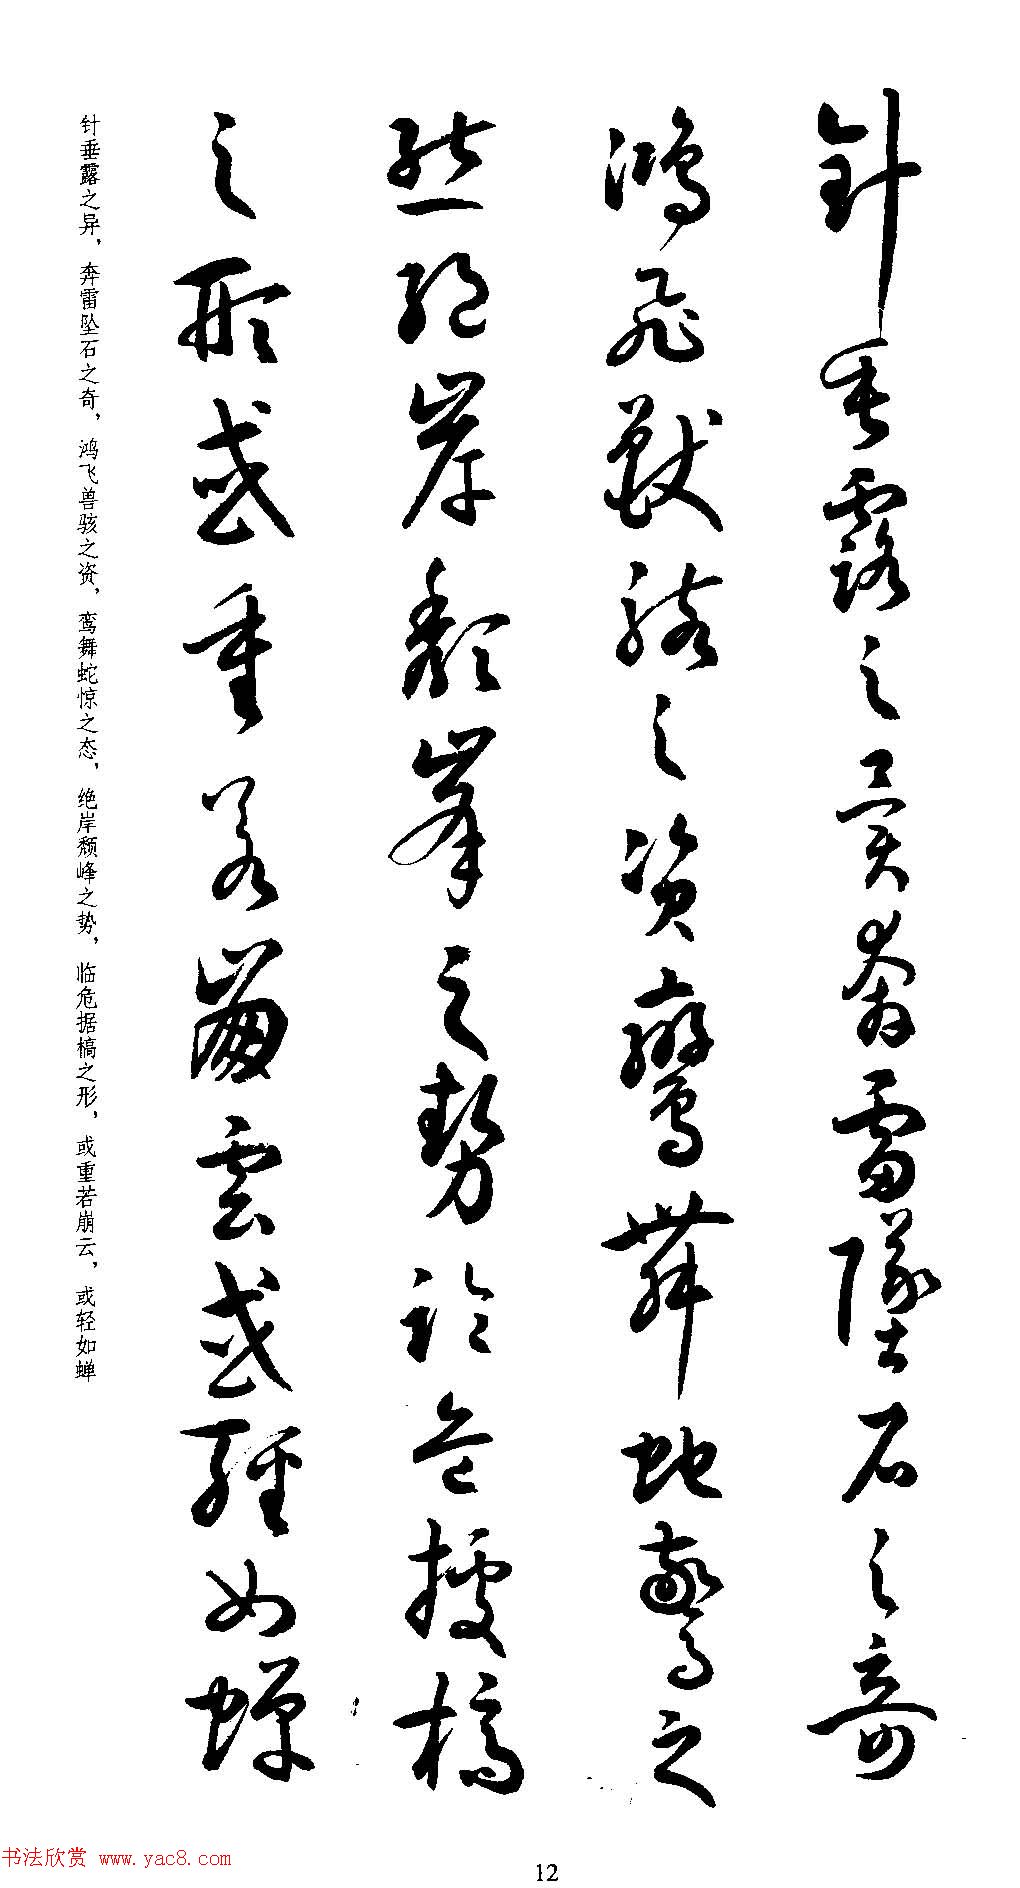 針垂露之異奔雷墜石之奇
鴻飛獸駭之資鸞舞蛇驚之
態絕岸頹峯之勢臨危據槁
之形或重若崩雲或輕如蟬
针垂露之异，奔雷坠石之奇，鸿飞兽骇之资，鸾舞蛇惊之态，绝岸颓峰之势，临危据槁之形，或重若崩云，或轻如蝉
书法欣赏 www.yac8.com
12